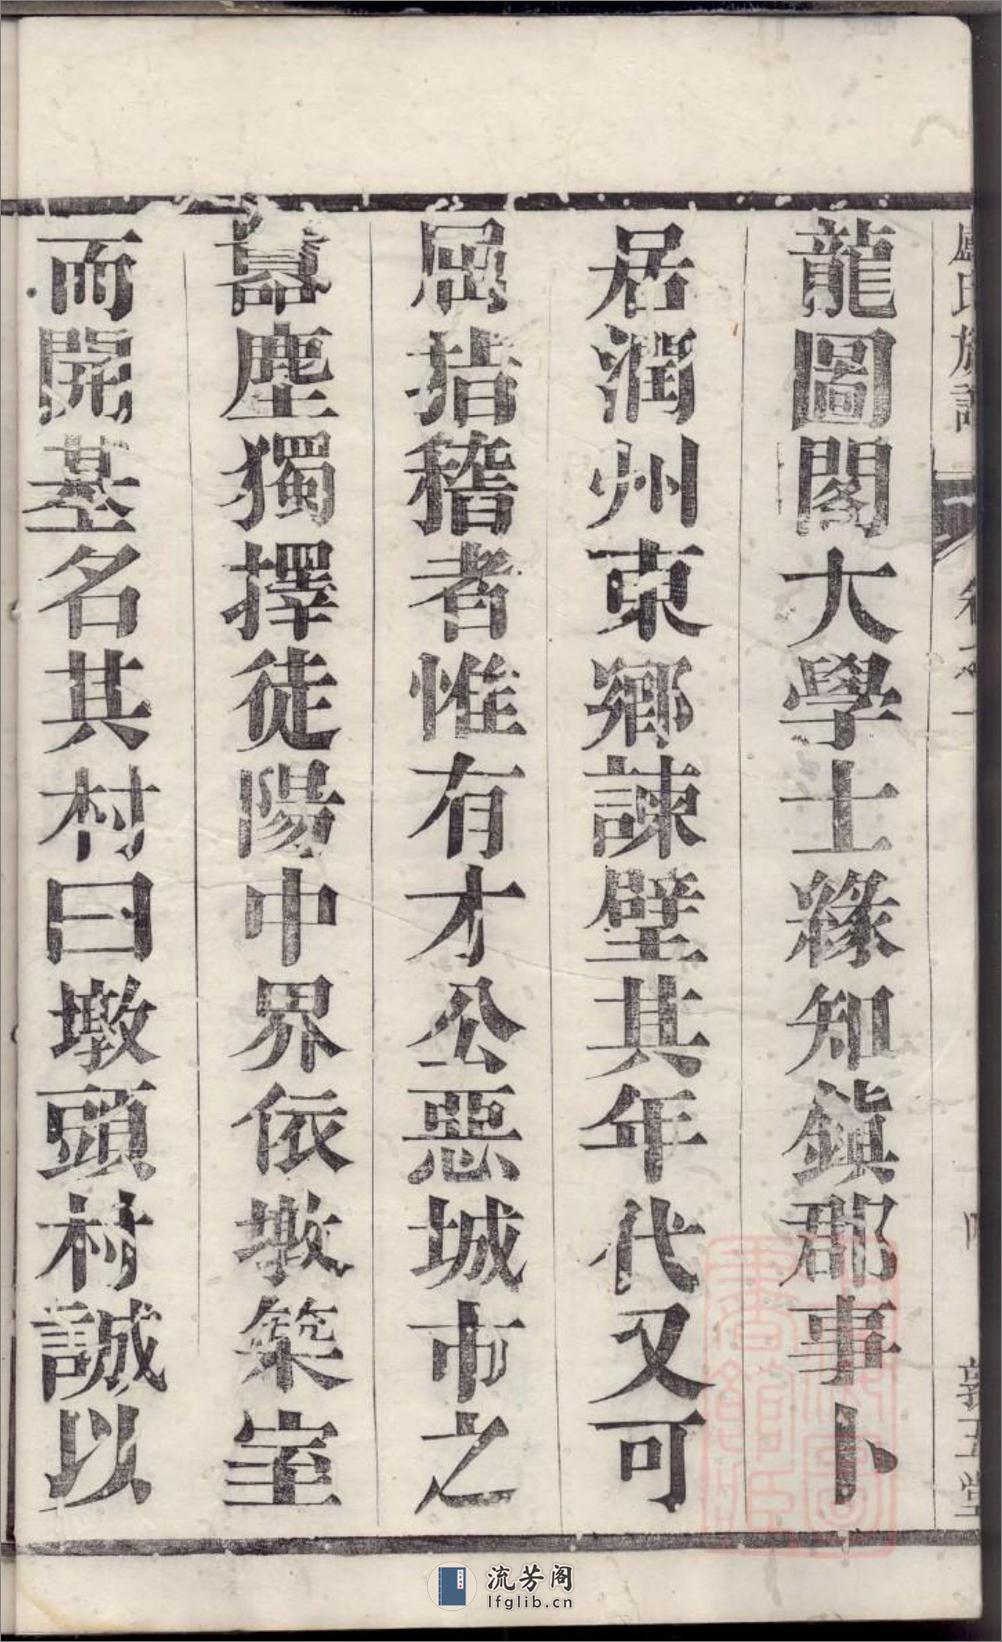 龍圖閣大學士緣知鎮郡事卜
居潤州東鄉諫壁其年代又可
屈指稽者惟有才公惡城市之
囂塵獨擇徒陽中界依墩築室
而開基名其村曰墩頭村誠以
氏族譜
卷之一
敦五堂
流芳阁
lfglib.cn